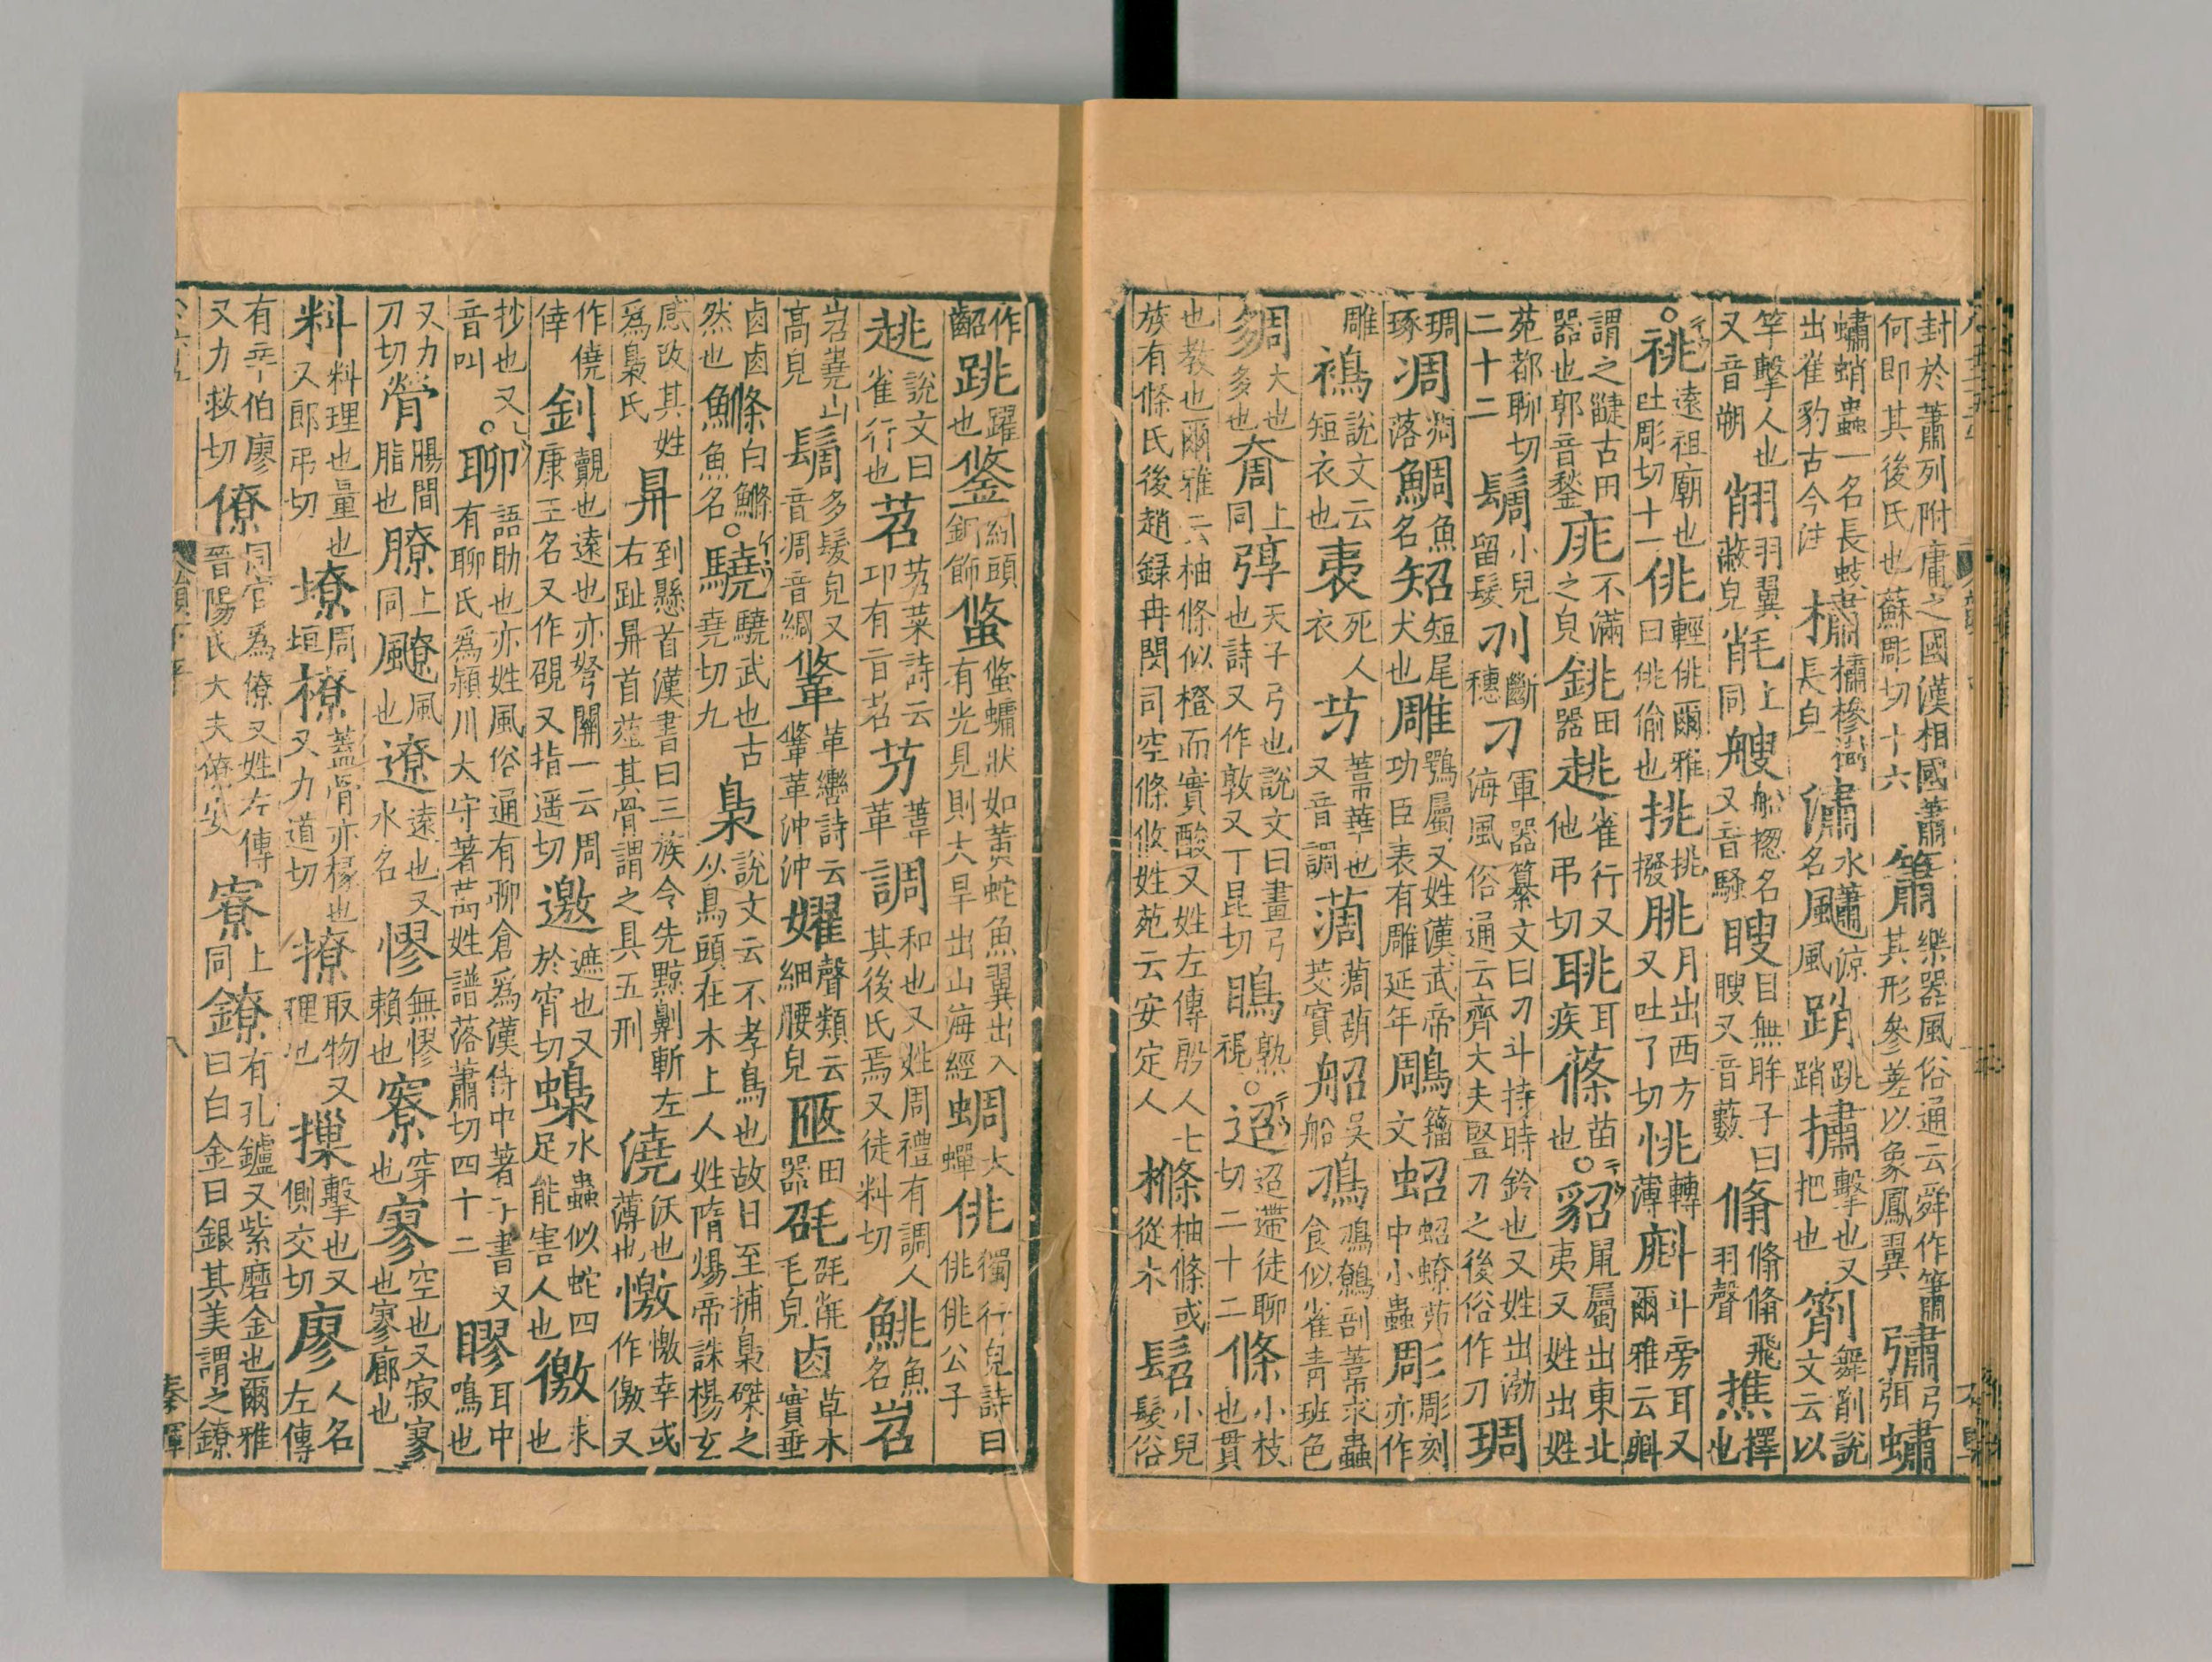 封於蕭列附庸之國漢相國蕭何即其後氏也蘇彫切十六簫樂器風俗通云舜作簫其形參差以象鳳翼彇弓弭蟰
蟰蛸蟲一名長蚑出崔豹古今注橚橚槮樹長皃潚水名飍涼風䠛跳䠛捎擊也又把也箾舞箾說文云以
竿擊人也又音朔䎘羽翼蔽皃㲖上同艘船䚇名又音騷瞍目無眸子曰瞍又音藪翛翛翛飛羽聲撨擇也
○祧遠祖廟也吐彫切十一佻輕佻爾雅曰佻偷也挑挑撥朓月出西方又吐了切恌轉薄斛斗旁耳又爾雅云斛
謂之疀古田器也郭音鍫庣不滿之皃銚田器趒雀行又他弔切聎耳疾蓧苗也○貂鼠屬出東北夷又姓出姓
苑都聊切二十二鬝小兒留髮刟斷穗刁軍器纂文曰刁斗持時鈴也又姓出渤海風俗通云齊大夫豎刁之後俗作刀琱
琱琢凋凋落鯛魚名㹦短尾犬也雕鶚屬又姓漢武帝功臣表有雕延年鵰籀文蛁蛁蟟茆中小蟲彫彫刻亦作
雕䄪說文云短衣也裯死人衣芀葦華也又音調蓨蓨葫茭實舠吳船鳭鳭鷯剖葦求蟲食似雀青班色
奝大也多也奝上同弴天子弓也說文曰畫弓也詩又作敦又丁昆切瞗熟視○迢迢遰徒聊切二十二條小枝也貫
也教也爾雅云柚條似橙而實酸又姓左傳殷人七族有條氏後趙錄冉閔司空條攸姓苑云安定人樤柚條或從木髫小兒髮俗
作齠跳躍也鋚紖頭銅飾䖺䖺𧑄狀如黃蛇魚翼出入有光見則大旱出山海經蜩大蟬佻獨行皃詩曰佻佻公子
趒說文曰雀行也苕苕菜詩云卭有旨苕芀葦芀調和也又姓周禮有調人其後氏焉又徒料切鮡魚名岧
岧嶤山高皃䯾多髮皃又音凋音綢鞗革轡詩云鞗革沖沖嬥聲類云細腰皃㔶田器㲈㲈㲖毛皃卤草木實垂
卤卤然也鯈白鯈魚名○驍驍武也古堯切九梟說文云不孝鳥也故日至捕梟磔之从鳥頭在木上人姓隋煬帝誅楊玄
感改其姓爲梟氏𥄉到懸首漢書曰三族令先黥劓斬左右趾𥄉首菹其骨謂之具五刑澆沃也薄也憿憿幸或作僥又
作僥倖釗覿也遠也亦弩關一云周康王名又作䂃又指遥切邀遮也又於宵切蟂水蟲似蛇四足能害人也徼求也
抄也又音叫○聊語助也亦姓風俗通有聊倉爲漢侍中著子書又有聊氏爲潁川大守著萬姓譜落蕭切四十二膠耳中鳴也
又力刀切膋腸間脂也膫上同飂風也遼遠也又水名憀無憀賴也寮穿也寥空也又寂寥也寥廓也
料料理也量也又郎弔切墂周垣橑蓋骨亦椽也又力道切撩取物又理也摷擊也又側交切廖人名左傳
有辛伯廖又力救切僚同官爲僚又姓左傳晉陽氏大夫僚安寮上同鐐有孔鑪又紫磨金也爾雅曰白金曰銀其美謂之鐐